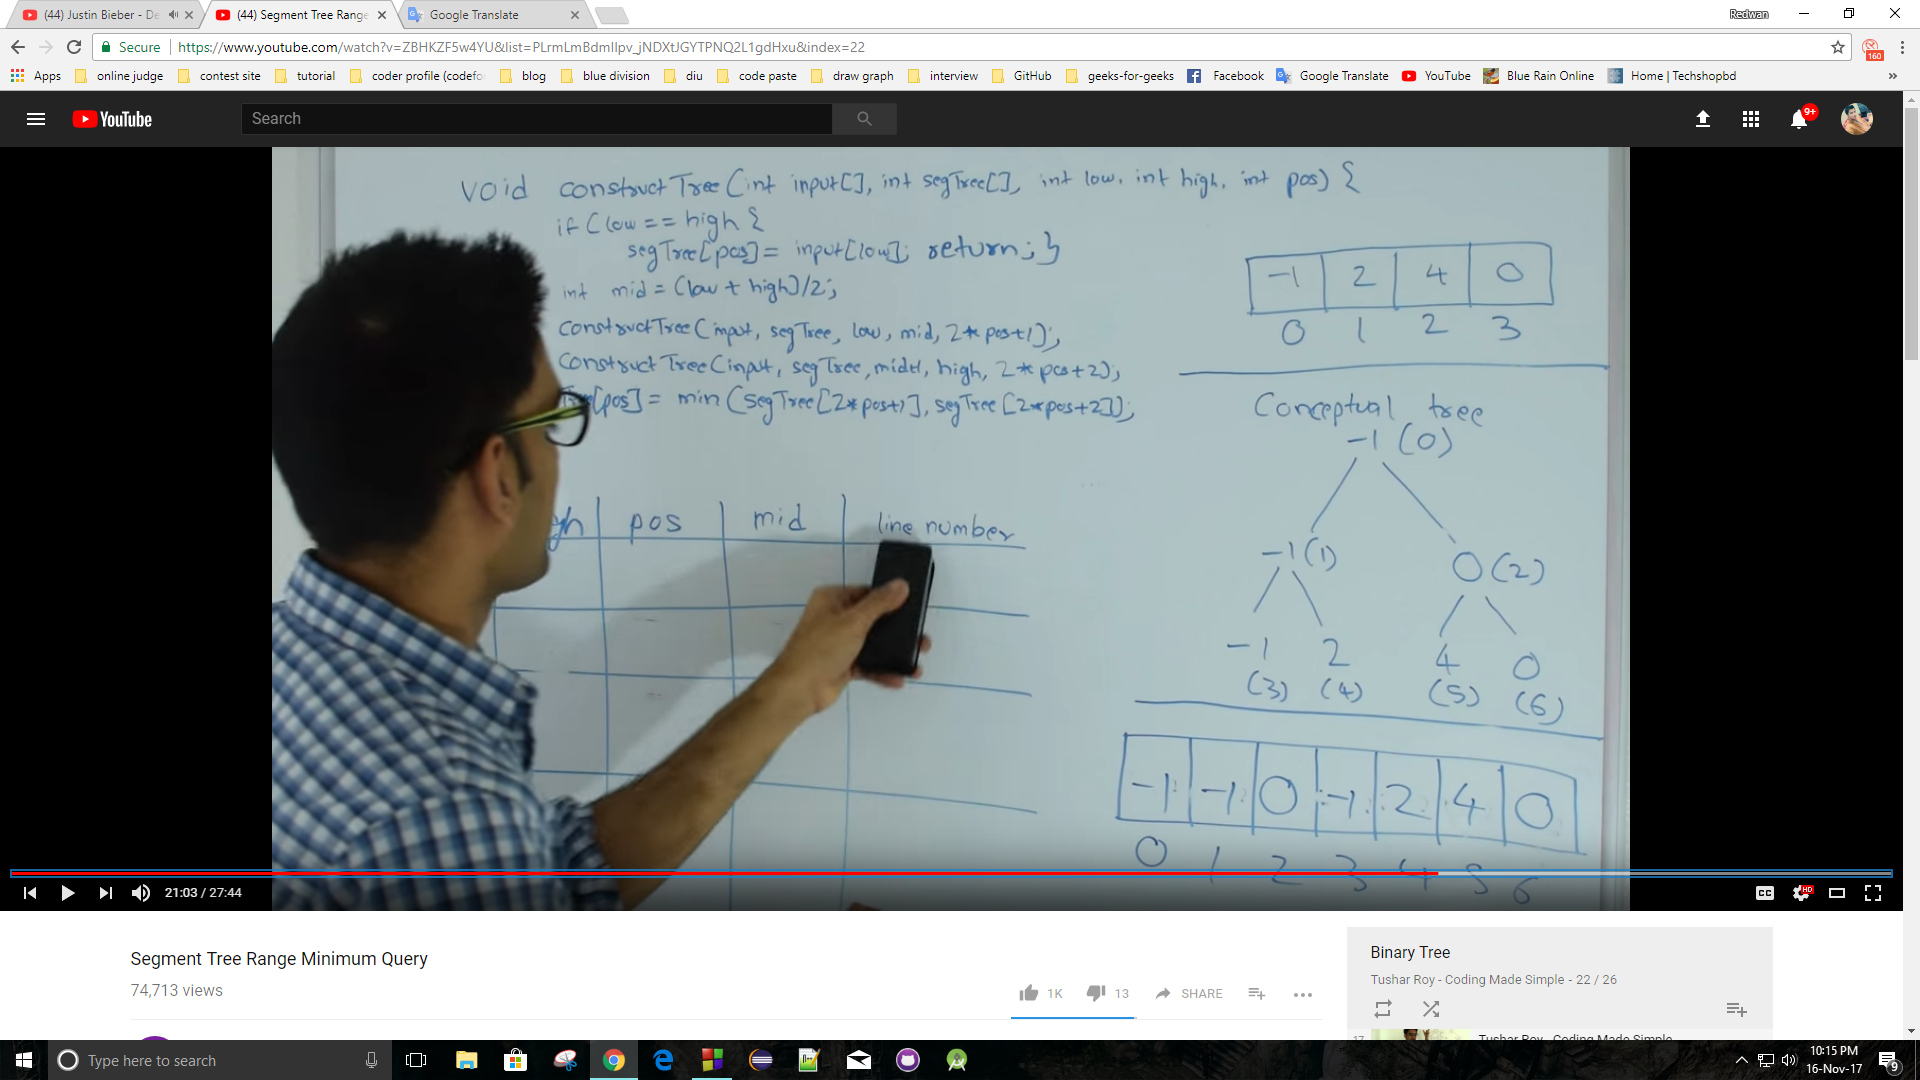 (44) Justin Bieber - De
(44) Segment Tree Range
Google Translate
Redwan
Secure
https://www.youtube.com/watch?v=ZBHKZF5w4YU&list=PLrmLmBdmIlpv_jNDXtJGYTPNQ2L1gdHxu&index=22
160
Apps online judge contest site tutorial coder profile (codefo blog blue division diu code paste draw graph interview GitHub geeks-for-geeks Facebook Google Translate YouTube Blue Rain Online Home | Techshopbd »
YouTube
Search
9+
void constructTree(int input[], int segTree[], int low, int high, int pos) {
if (low == high {
segTree[pos] = input[low]; return; }
int mid = (low + high)/2;
constructTree(input, segTree, low, mid, 2*pos+1);
constructTree(input, segTree, mid+1, high, 2*pos+2);
Tree[pos] = min(segTree[2*pos+1], segTree[2*pos+2]);
gh pos mid line number
-1 2 4 0
0 1 2 3
Conceptual tree
-1 (0)
-1 (1) 0 (2)
-1 2 4 0
(3) (4) (5) (6)
-1 -1 0 -1 2 4 0
0 1 2 3 4 5 6
21:03 / 27:44
CC
HD
Segment Tree Range Minimum Query
74,713 views
1K 13 SHARE
Binary Tree
Tushar Roy - Coding Made Simple - 22 / 26
17 Tushar Roy - Coding Made Simple
Type here to search
10:15 PM
16-Nov-17
9